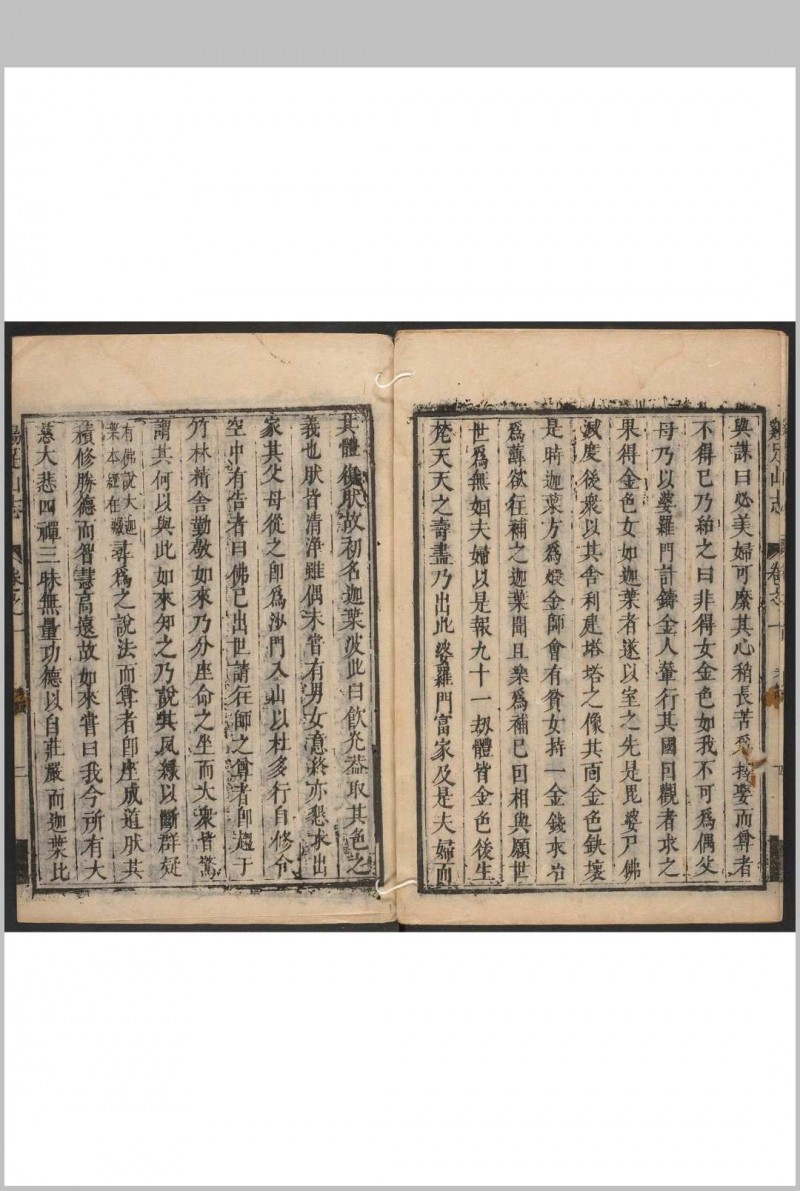 雞足山志 卷之一
與謀曰必美婦可縻其心稍長苦爲擇娶而尊者
不得已乃紿之曰非得女金色如我不可爲偶父
母乃以婆羅門計鑄金人輦行其國回觀者求之
果得金色女如迦葉者遂以室之先是毘婆尸佛
滅度後衆以其舍利建塔塔之像其面金色缺壞
是時迦葉方爲煅金師會有貧女持一金錢求治
爲薄欲往補之迦葉聞且樂爲補已回相與願世
世爲無姻夫婦以是報九十一劫體皆金色後生
梵天天之壽盡乃出此婆羅門富家及是夫婦而
其體復肰故初名迦葉波此曰飲光蓋取其色之
義也肰皆清淨雖偶未嘗有男女意終亦懇求出
家其父母從之卽爲沙門入山以杜多行自修令
空中有告者曰佛已出世請往師之尊者卽趨于
竹林精舍勤敬如來乃分座命之坐而大衆皆驚
謂其何以與此如來知之乃說夙緣以斷群疑
有佛說大迦
葉本經在藏
尋爲之說法而尊者卽座成道肰其
積修勝德而智慧高遠故如來嘗曰我今所有大
慈大悲四禪三昧無量功德以自莊嚴而迦葉比
雞足山志 卷之一